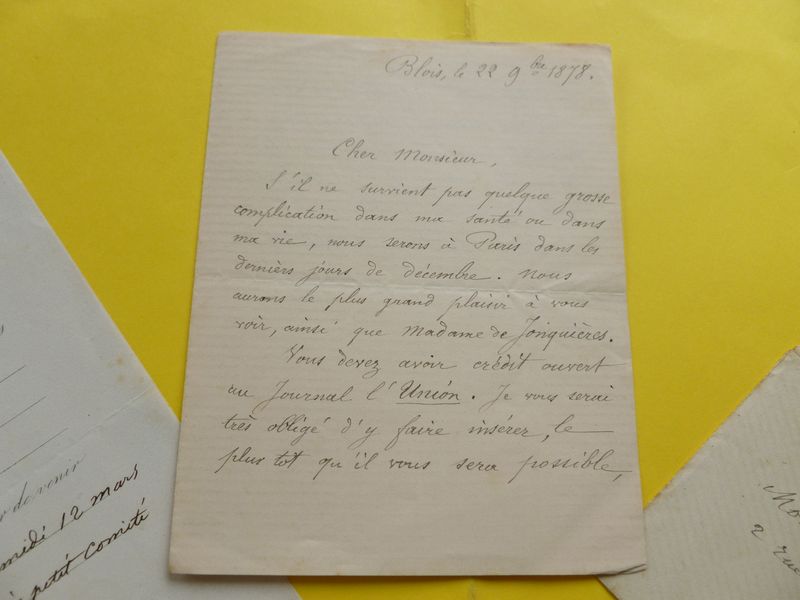 Blois, le 22 9bre 1878.
Cher Monsieur,
S'il ne survient pas quelque grosse
complication dans ma santé ou dans
ma vie, nous serons à Paris dans les
derniers jours de décembre. Nous
aurons le plus grand plaisir à vous
voir, ainsi que Madame de Jonquières.
Vous devez avoir crédit ouvert
au Journal l'Union. Je vous serai
très obligé d'y faire insérer, le
plus tot qu'il vous sera possible,
de venir
12 mars
petit Comité
2 rue